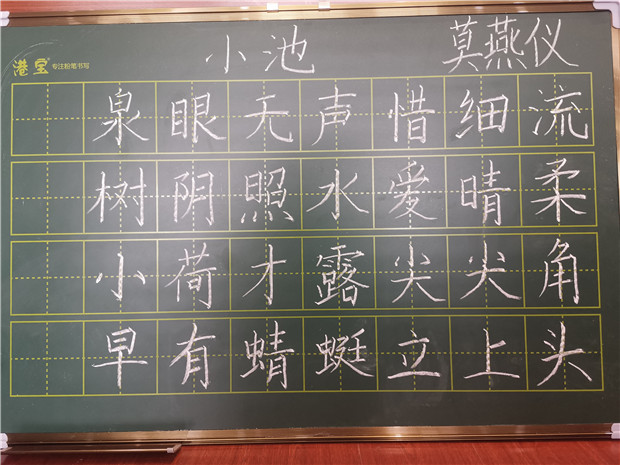 小池 莫燕仪
港宝 专注粉笔书写
泉眼无声惜细流
树阴照水爱晴柔
小荷才露尖尖角
早有蜻蜓立上头